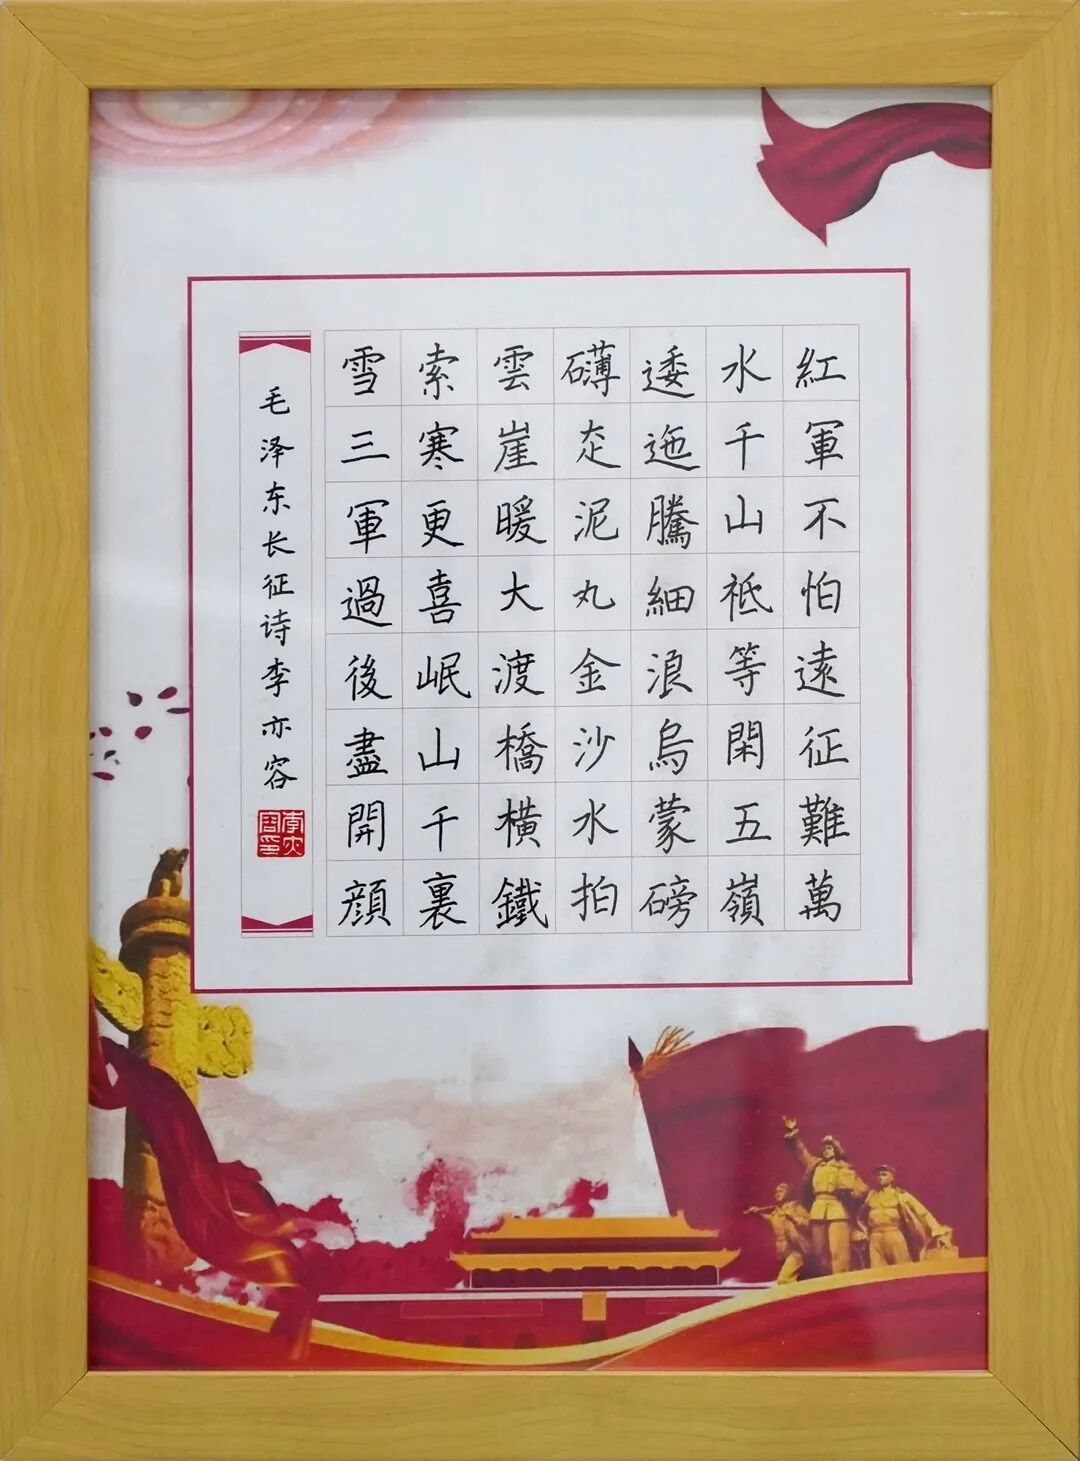 紅軍不怕遠征難萬
水千山祗等閑五嶺
逶迤騰細浪烏蒙磅
礴走泥丸金沙水拍
雲崖暖大渡橋橫鐵
索寒更喜岷山千裏
雪三軍過後盡開顔
毛泽东长征诗李亦容